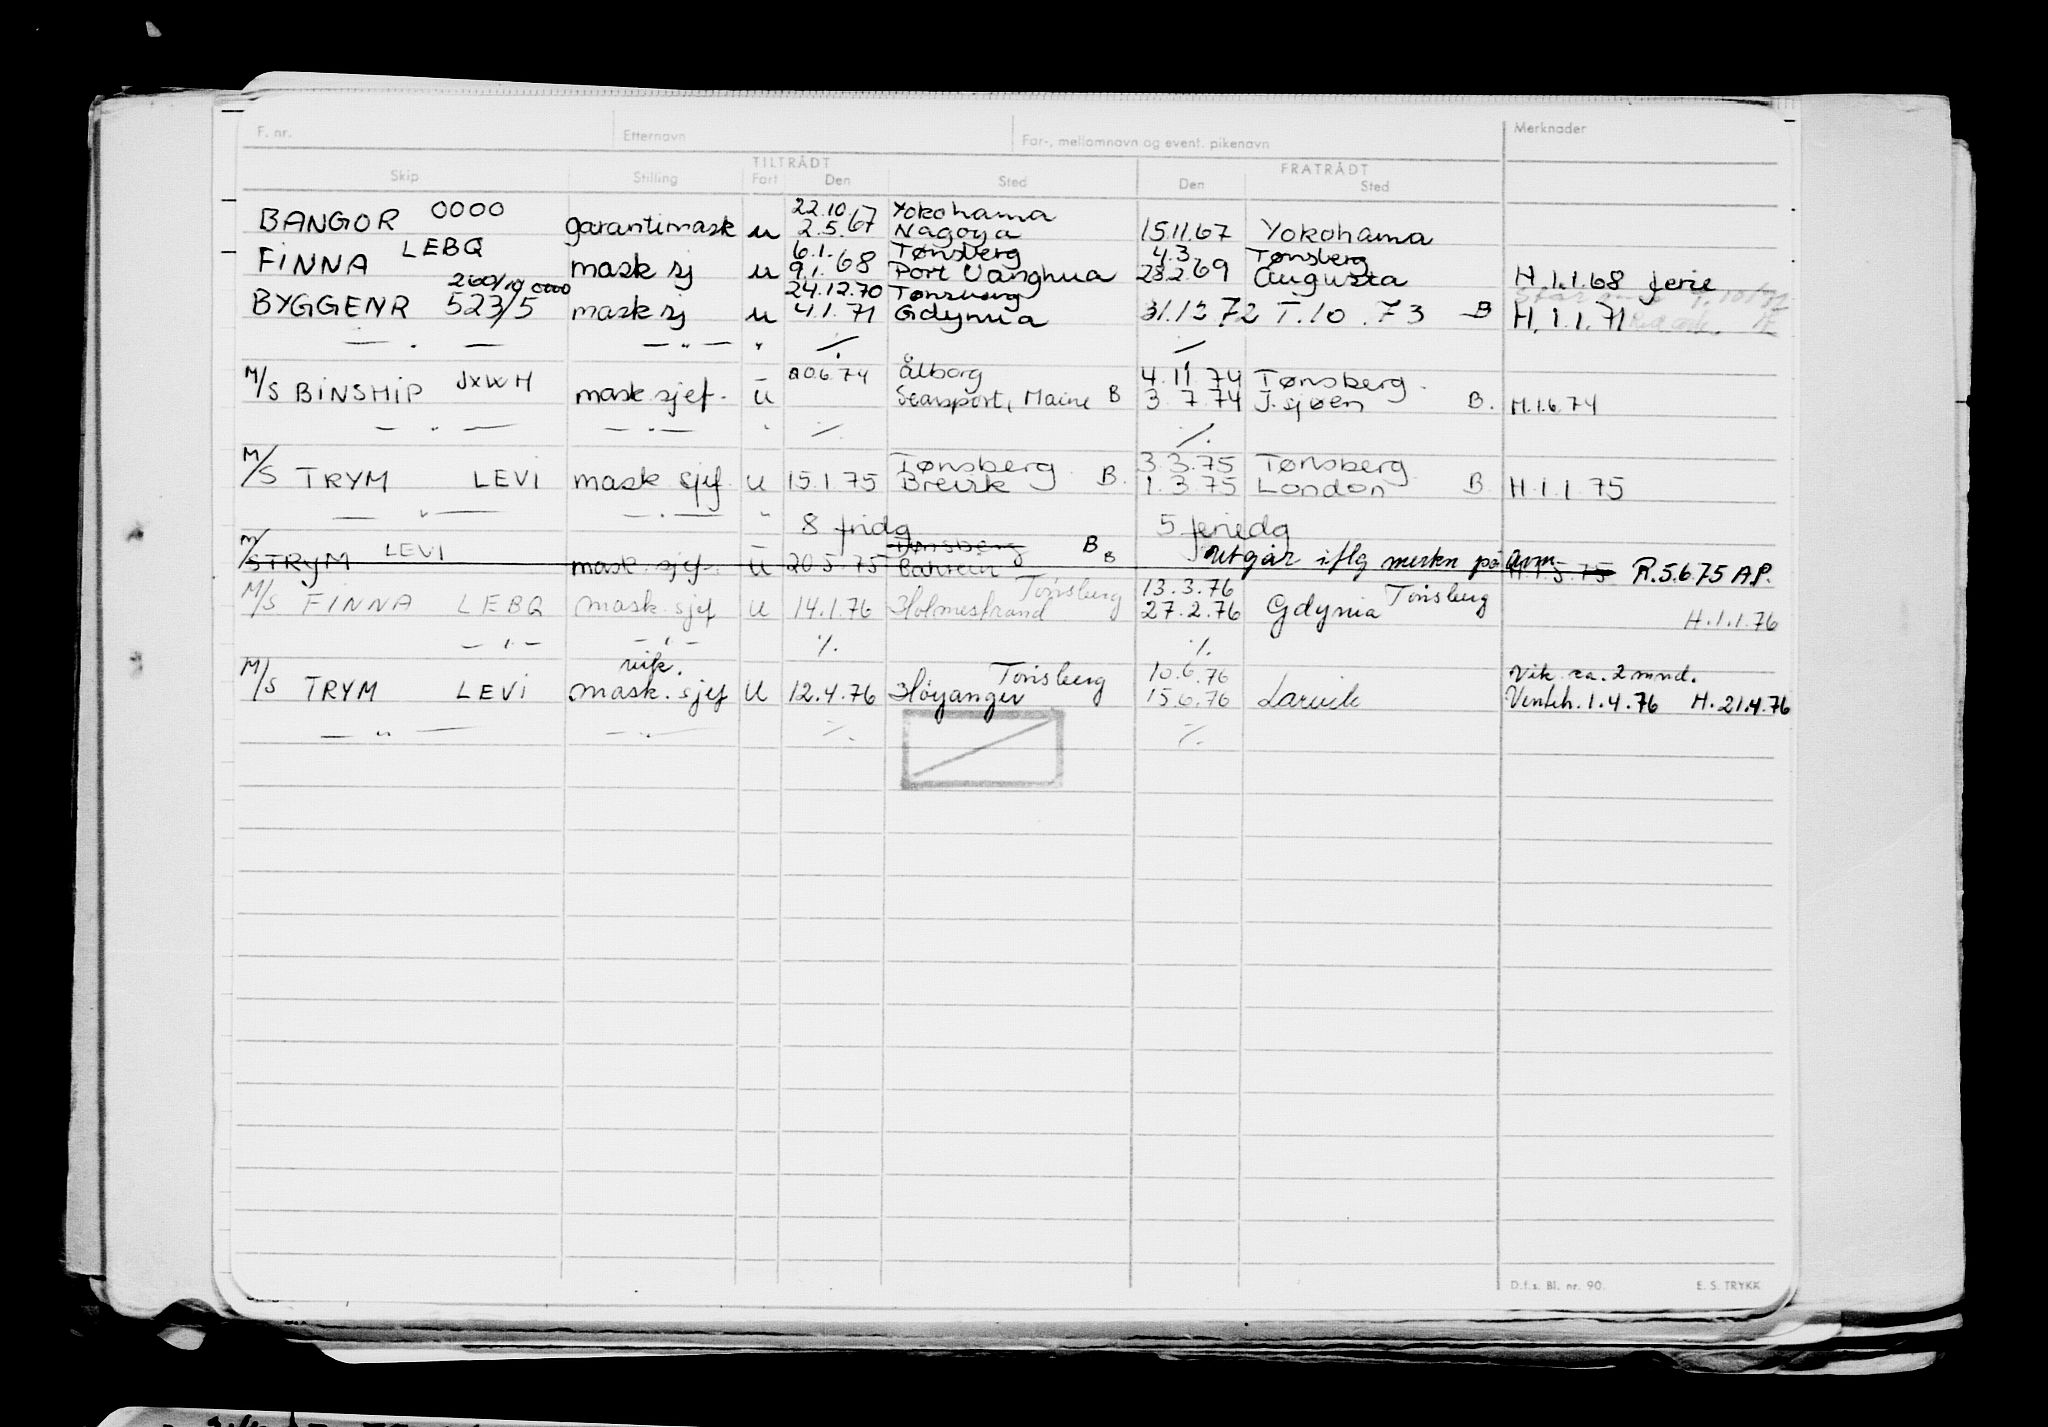 F. nr. Etternavn For-, mellomnavn og event. pikenavn Merknader
TILTRÅDT FRATRÅDT
Skip Stilling Fart Den Sted Den Sted
22.10. Yokohama
BANGOR 0000 garantimask u 2.5.67 Nagoya 15.11.67 Yokohama
6.1. Tønsberg 4.3 Tønsberg
FINNA LEBQ mask sj u 9.1.68 Port Vanghua 28.2.69 Augusta H.1.1.68 ferie
260/10 0000 24.12.70 Tønsberg
BYGGENR 523/5 mask sj u 4.1.71 Gdynia 31.12.72 T.10.73 B H.1.1.71
— " — — " — " ./. ./.
20.6.74 Ålborg 4.11.74 Tønsberg.
M/S BINSHIP JXWH mask.sjef. u Searsport, Maine B 3.7.74 J.sjøen B. H.1.6.74
— " — — " — " ./. ./.
Tønsberg 3.3.75 Tønsberg
M/S TRYM LEVI mask sjef. u 15.1.75 Brevik B. 1.3.75 London B H.1.1.75
— " — — " — "
8 fridg 5 feriedg
Tønsberg B
M/S TRYM LEVI mask.sjef. u 20.5.75 Bahrein B Utgår iflg merkn på avm H.1.5.75 R.5.6.75 AP.
Tønsberg 13.3.76 Tønsberg
M/S FINNA LEBQ mask.sjef u 14.1.76 Holmestrand 27.2.76 Gdynia H.1.1.76
— " — — " — ./. ./.
vik. Tønsberg 10.6.76 Vik ca. 2 mnd.
M/S TRYM LEVI mask.sjef u 12.4.76 Høyanger 15.6.76 Larvik Venteh.1.4.76 H.21.4.76
— " — — " — ./. ./.
D.f.s. Bl. nr. 90. E. S. TRYKK